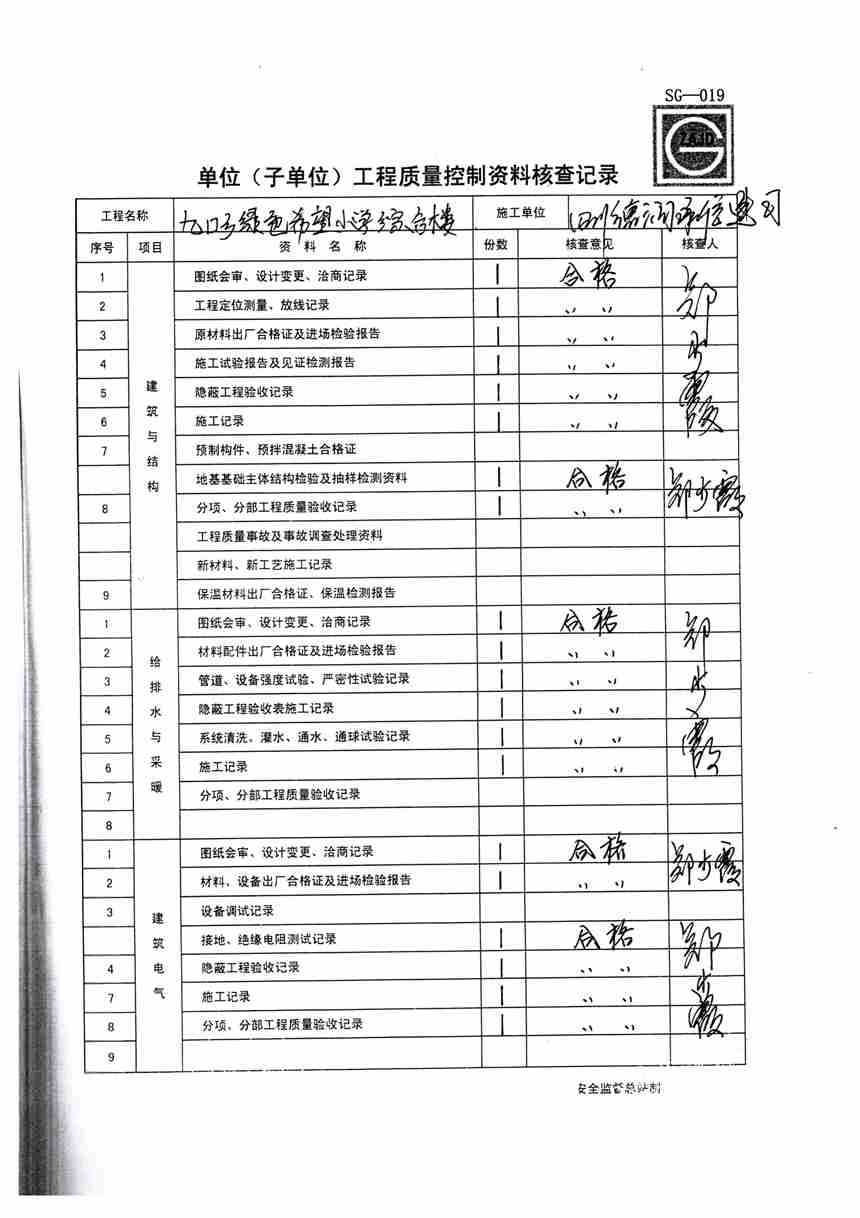 SG—019
ZAJD
单位（子单位）工程质量控制资料核查记录
工程名称 九口子绿色希望小学综合楼 施工单位 四川德润
序号 项目 资料名称 份数 核查意见 核查人
建筑与结构
1 图纸会审、设计变更、洽商记录 1 合格 郑
2 工程定位测量、放线记录 1 〃 〃
3 原材料出厂合格证及进场检验报告 1 〃 〃
4 施工试验报告及见证检测报告 1 〃 〃
5 隐蔽工程验收记录 1 〃 〃 霞
6 施工记录 1 〃 〃
7 预制构件、预拌混凝土合格证
地基基础主体结构检验及抽样检测资料 1 合格 郑 霞
8 分项、分部工程质量验收记录 1 〃 〃
工程质量事故及事故调查处理资料
新材料、新工艺施工记录
9 保温材料出厂合格证、保温检测报告
给排水与采暖
1 图纸会审、设计变更、洽商记录 1 合格 郑
2 材料配件出厂合格证及进场检验报告 1 〃 〃
3 管道、设备强度试验、严密性试验记录 1 〃 〃
4 隐蔽工程验收表施工记录 1 〃 〃
5 系统清洗、灌水、通水、通球试验记录 1 〃 〃 霞
6 施工记录 1 〃 〃
7 分项、分部工程质量验收记录
8
建筑电气
1 图纸会审、设计变更、洽商记录 1 合格 郑 霞
2 材料、设备出厂合格证及进场检验报告 1 〃 〃
3 设备调试记录
接地、绝缘电阻测试记录 1 合格 郑
4 隐蔽工程验收记录 1 〃 〃
7 施工记录 1 〃 〃 霞
8 分项、分部工程质量验收记录 1 〃 〃
9
安全监督总站制